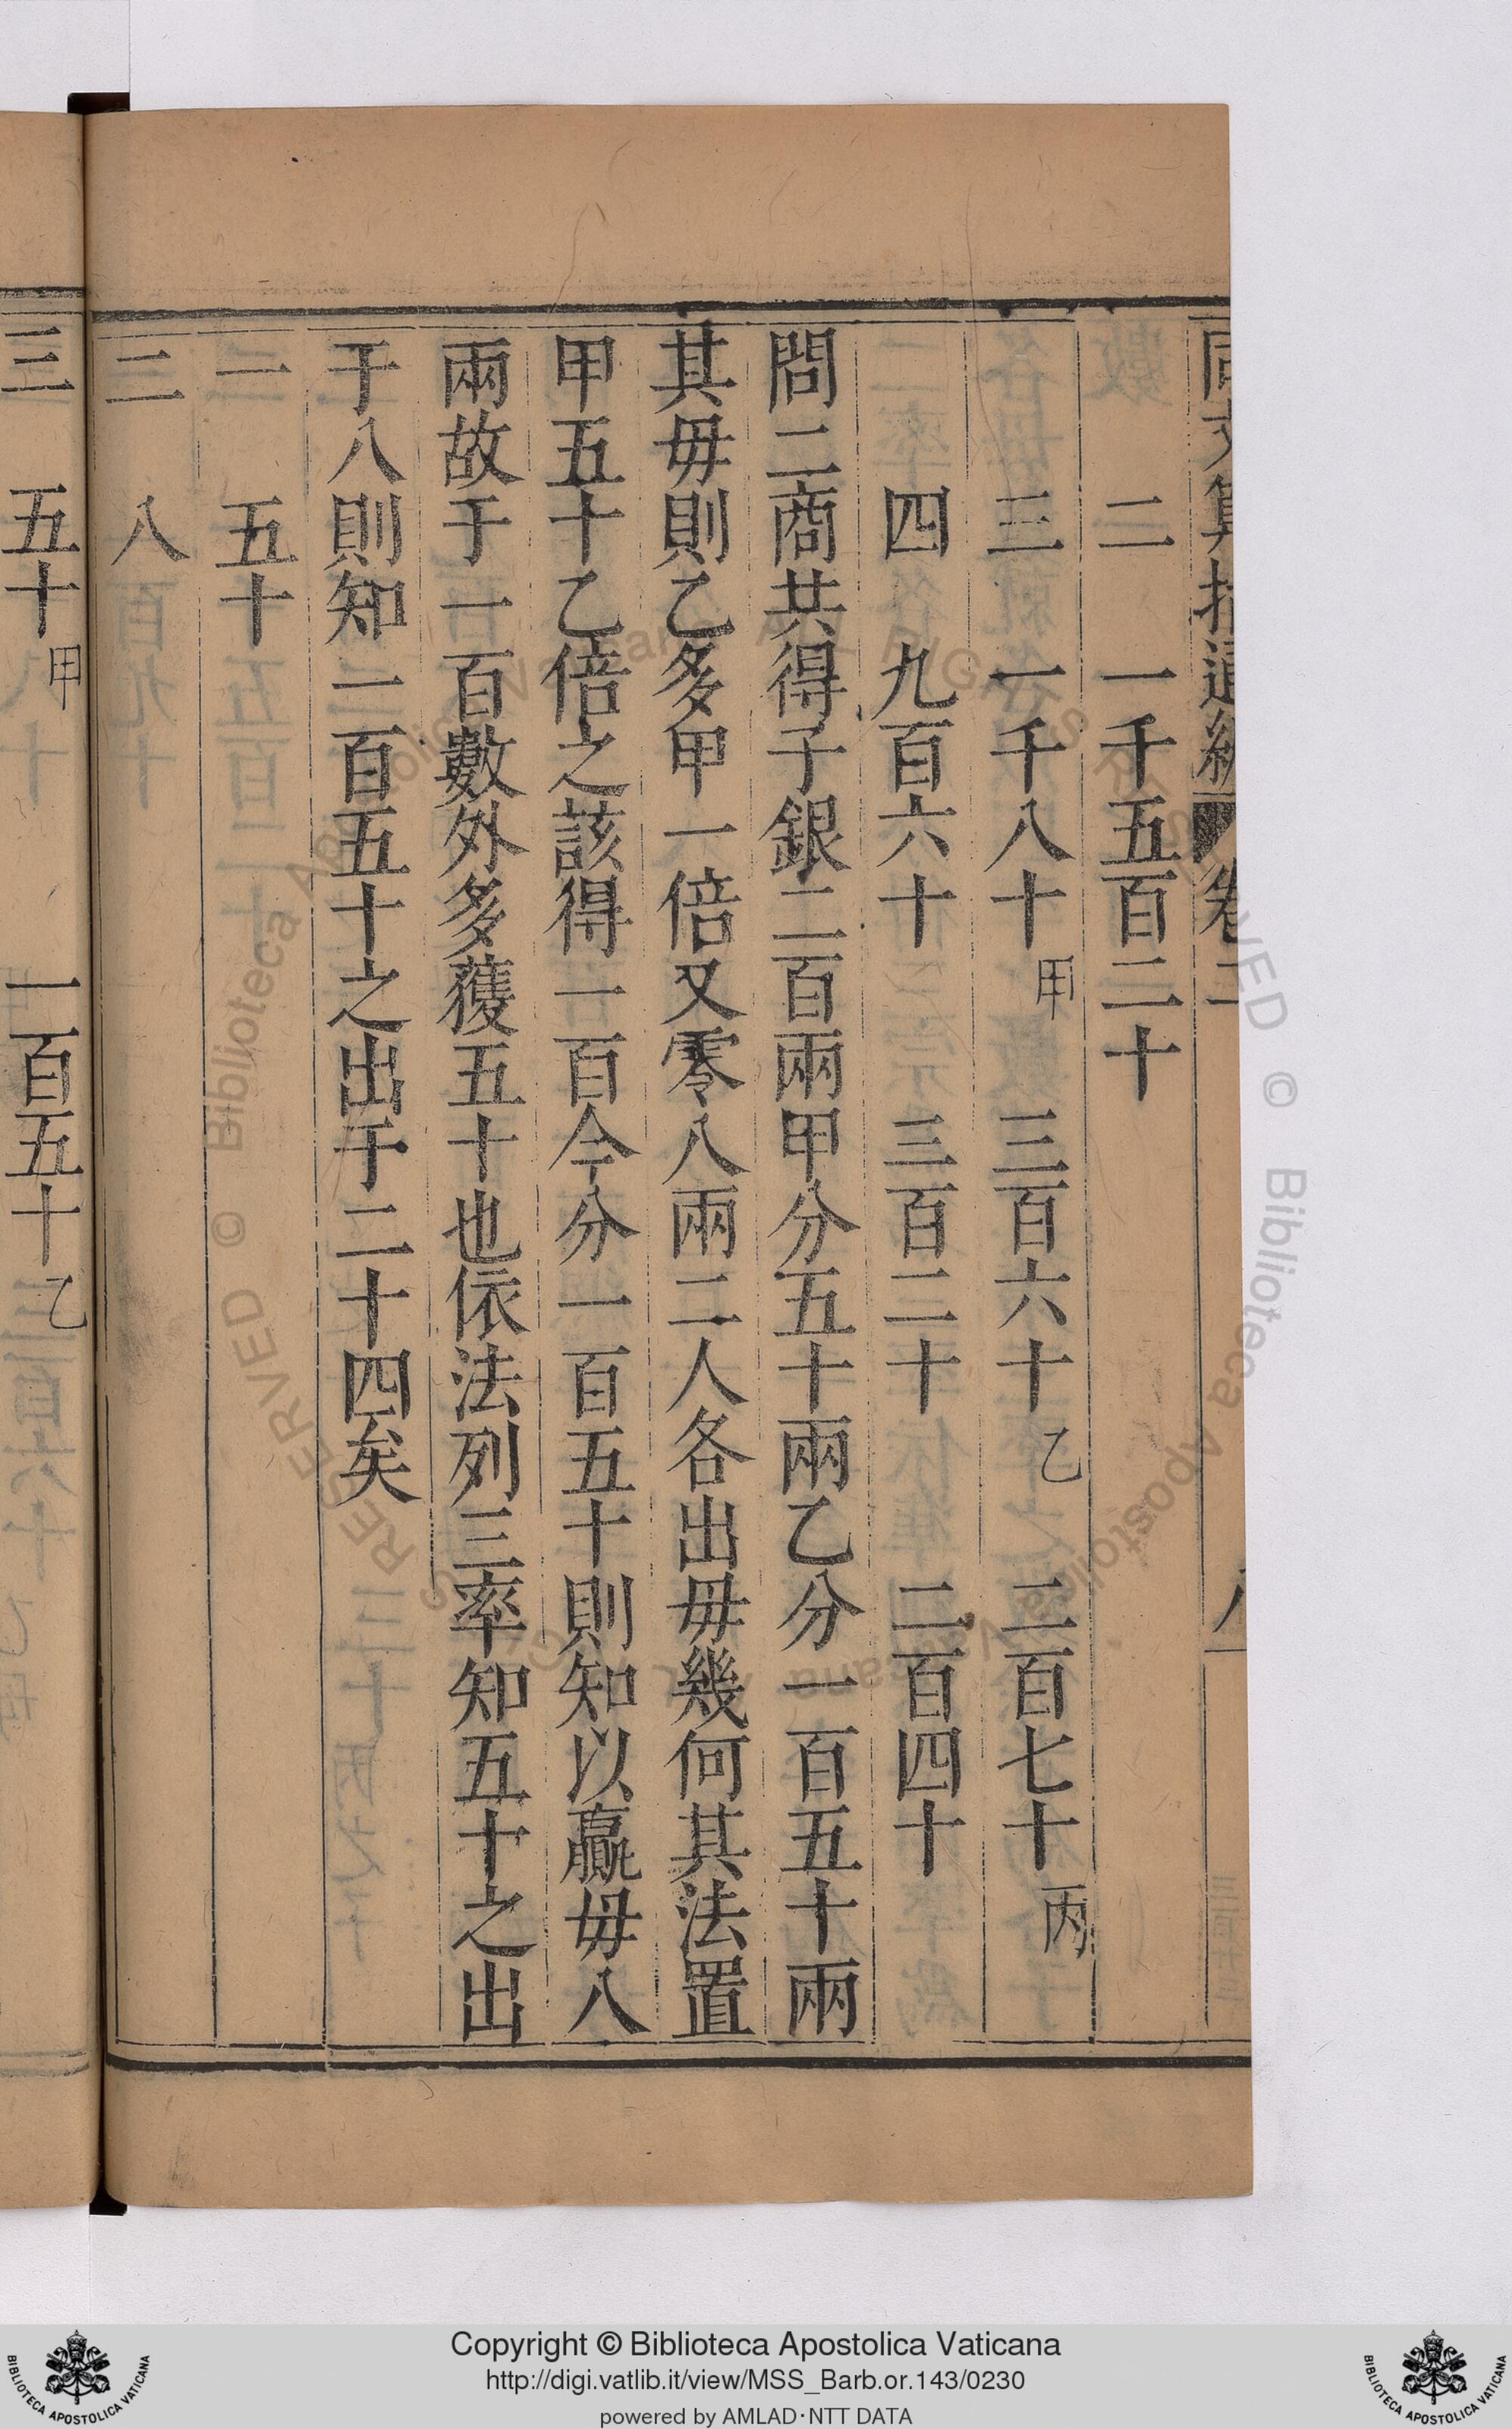 同文算指通編 卷二 八
二 一千五百二十
三 一千八十甲 三百六十乙 二百七十丙
四 九百六十 三百二十 二百四十
問二商共得子銀二百兩甲分五十兩乙分一百五十兩
其毋則乙多甲一倍又零八兩二人各出毋幾何其法置
甲五十乙倍之該得一百今分一百五十則知以贏毋八
兩故于一百數外多獲五十也依法列三率知五十之出
于八則知一百五十之出于二十四矣
一 五十
二 八
三 五十甲 一百五十乙
Copyright © Biblioteca Apostolica Vaticana
http://digi.vatlib.it/view/MSS_Barb.or.143/0230
powered by AMLAD·NTT DATA
BIBLIOTECA APOSTOLICA VATICANA
BIBLIOTECA APOSTOLICA VATICANA